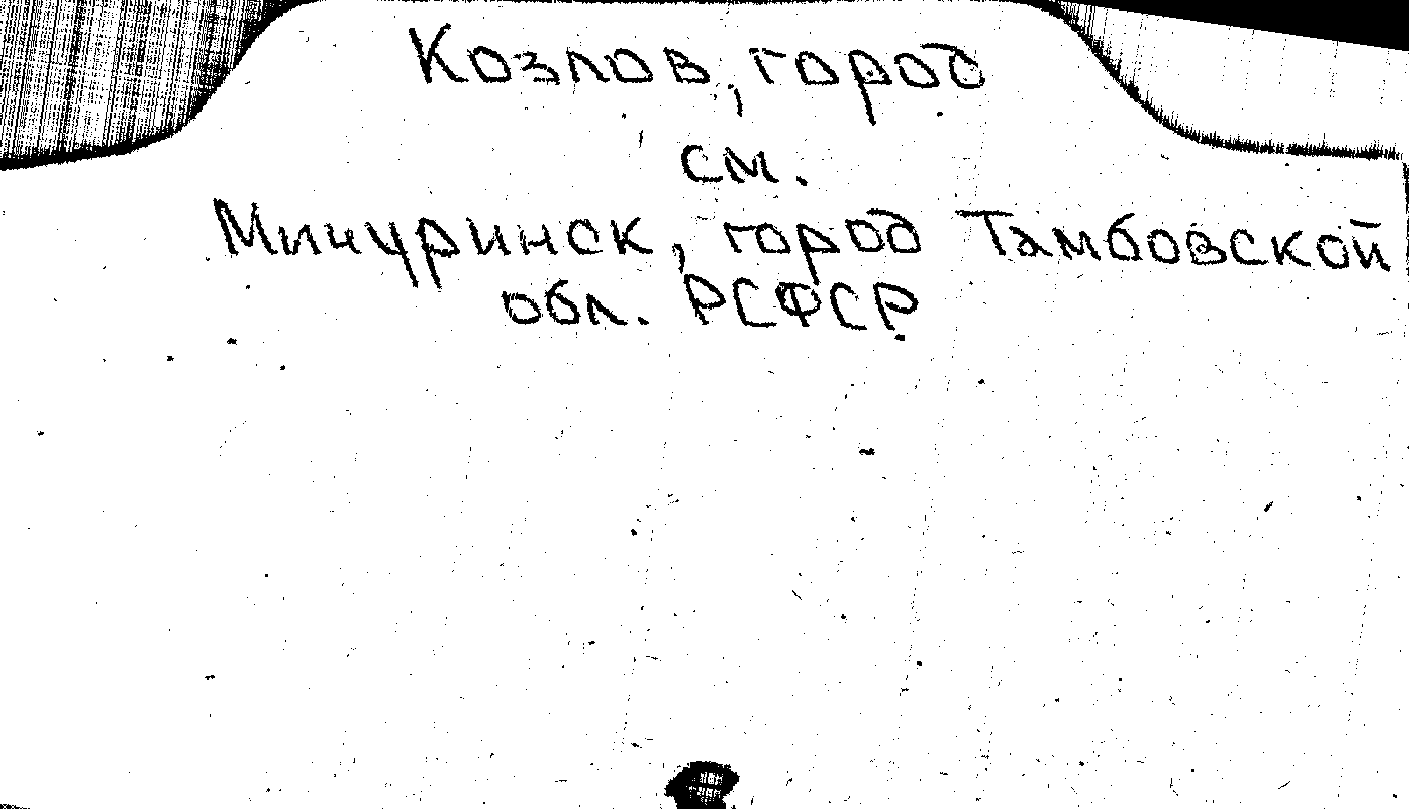 Козлов, город
см.
Мичуринск, город Тамбовской
обл. РСФСР